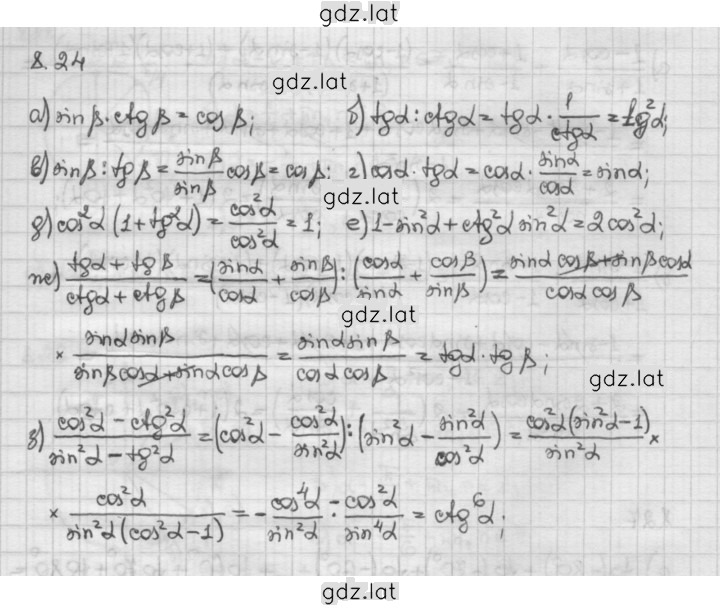 gdz.lat
8.24
gdz.lat
а) sin β · ctg β = cos β; б) tgα : ctgα = tgα · 1/ctgα = tg²α;
в) sin β : tg β = sin β/sin β cos β = cos β; г) cosα · tgα = cosα · sinα/cosα = sinα;
gdz.lat
д) cos²α (1 + tg²α) = cos²α/cos²α = 1; е) 1 - sin²α + ctg²α sin²α = 2cos²α;
ж) (tgα + tg β)/(ctgα + ctg β) = (sinα/cosα + sin β/cos β) : (cosα/sinα + cos β/sin β) = (sinα cos β + sin β cosα)/(cosα cos β)
gdz.lat
× (sinα sin β)/(sin β cosα + sinα cos β) = (sinα sin β)/(cosα cos β) = tgα · tg β;
gdz.lat
з) (cos²α - ctg²α)/(sin²α - tg²α) = (cos²α - cos²α/sin²α) : (sin²α - sin²α/cos²α) = cos²α(sin²α - 1)/sin²α ×
× cos²α/(sin²α(cos²α - 1)) = - cos⁴α/sin²α : - cos²α/sin⁴α = ctg⁶α;
gdz.lat